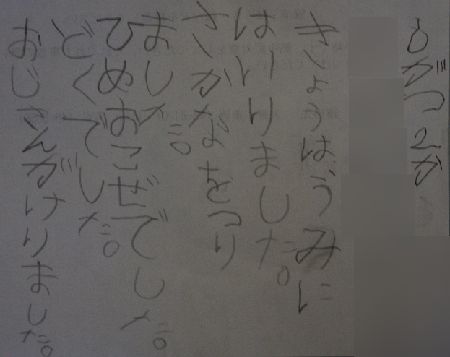 8がつ2か
きょうはうみに
はいりました。
さかなをつり
ました。
ひめおこぜでした。
どくでした。
おじさんがけりました。